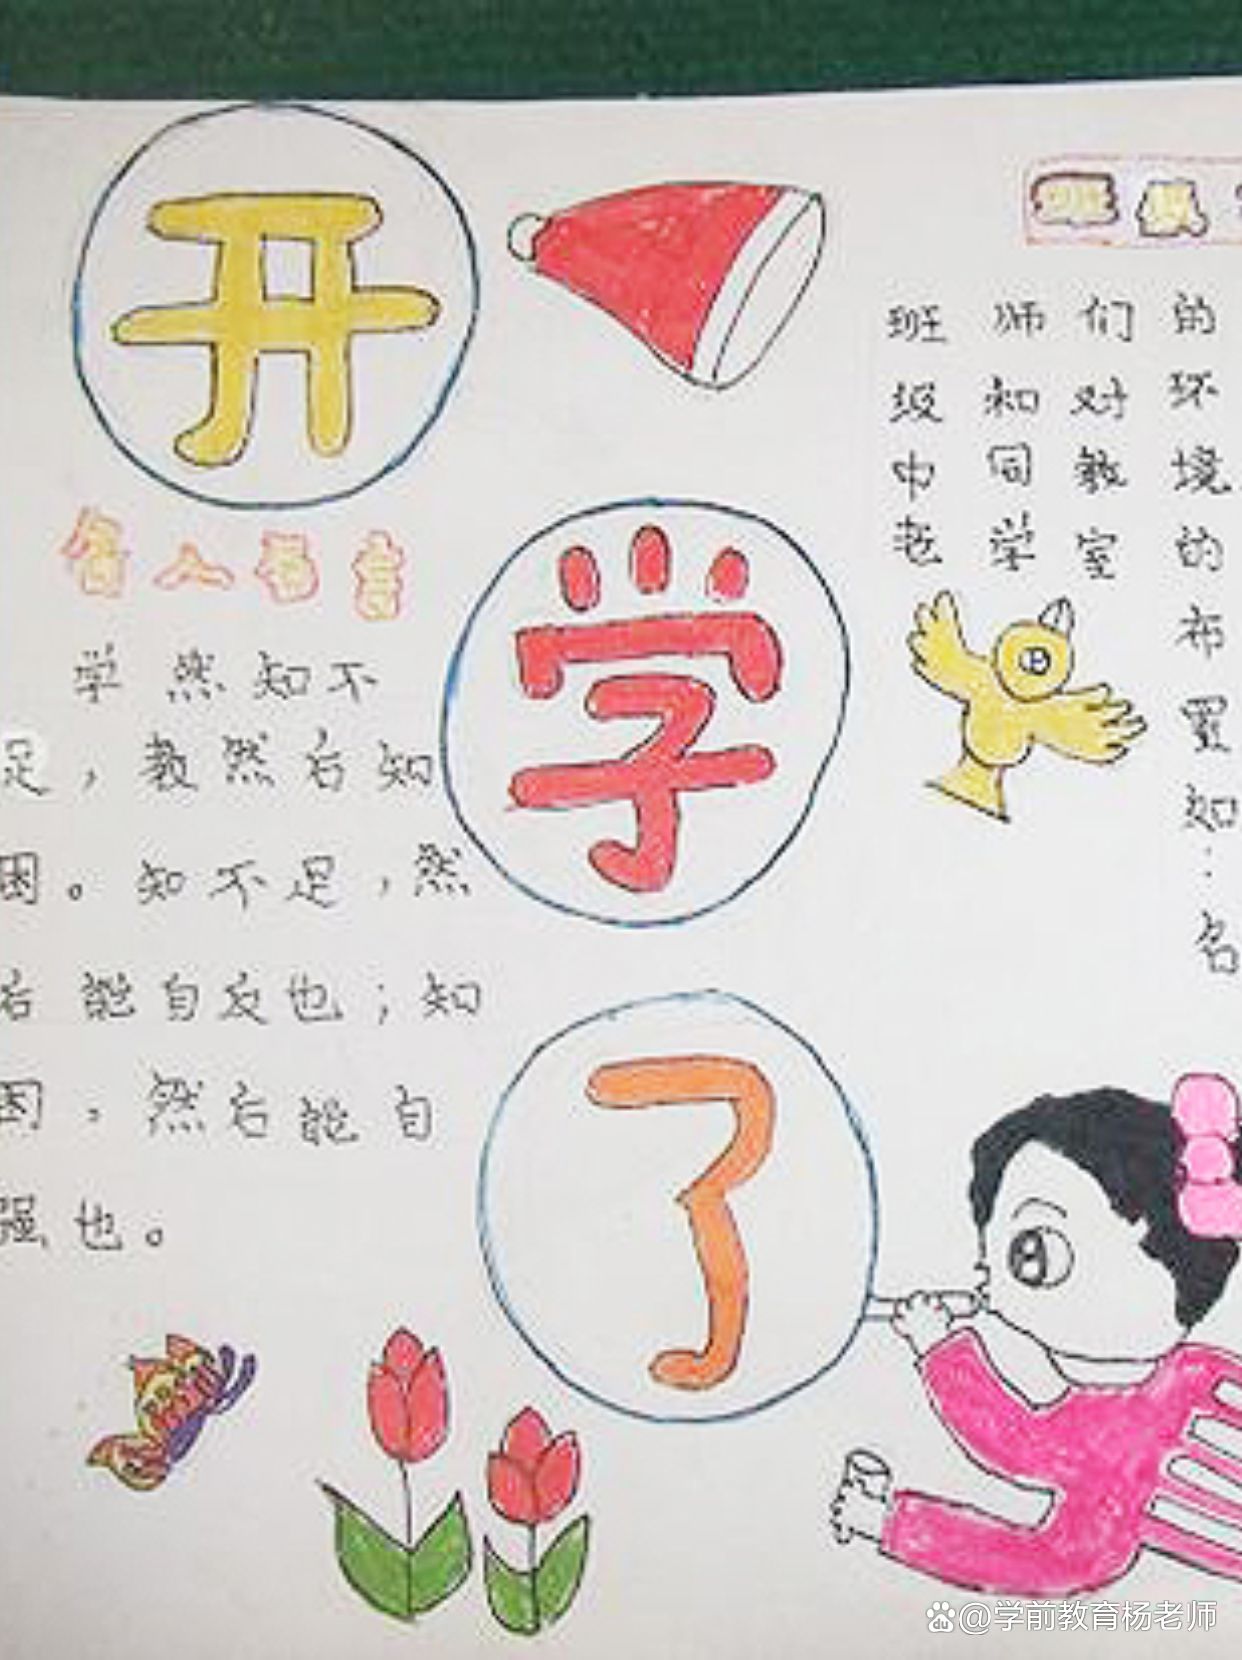 开
学
了
名人名言
学然知不
足，教然后知
困。知不足，然
后能自反也；知
困，然后能自
强也。
班级
班级中老
师和同学
们对教室
的环境的布置如：名
@学前教育杨老师